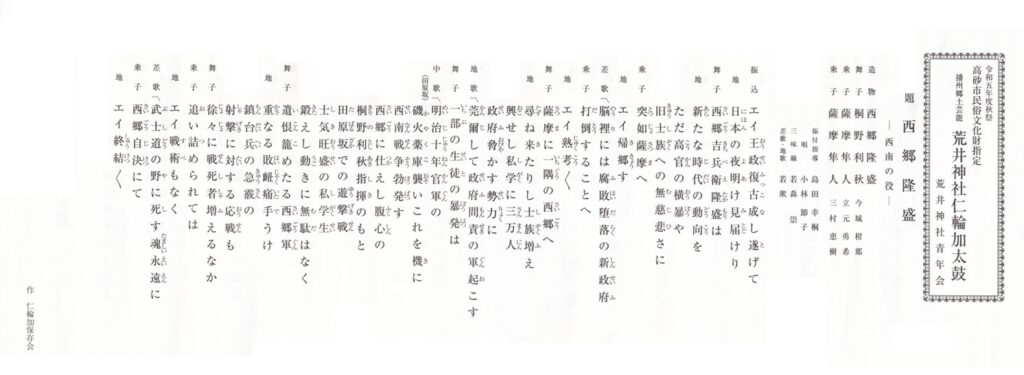 令和五年度秋祭
高砂市民俗文化財指定
播州郷土芸能 荒井神社仁輪加太鼓
荒井神社青年会
題 西郷隆盛
―西南の役―
造物 西郷隆盛
舞子 桐野利秋 今城柑那
乗子 薩摩隼人 立元勇希
乗子 薩摩隼人 三村恵樹
振付指導 島田幸桐
唄 小林節子
三味線 若森崇
差歌・地歌 若衆
振込 エイ王政復古成し遂げて
地 日本の夜明け見届けり
舞子 西郷吉兵衛隆盛は
地 新たな時代の動向を
ただ高官の横暴や
旧士族への無慈悲さに
乗子 突如薩摩へ
地 エイ帰郷す
差歌 脳裡には腐敗堕落の新政府
乗子 打倒することへ
地 エイ熟考く
舞子 薩摩に一隅の西郷へ
地 尋ね来たりし士族増え
興せし私学に三万人
政府脅かす勢力に
地歌 莞爾して政府問責の軍起こす
舞子 一部の生徒の暴発は
中歌 明治十年官軍の
(田原坂) 磯火薬庫襲いこれを機に
西南戦争勃発す
西郷に仕えし腹心の
桐野利秋指揮のもと
田原坂での遊撃戦
士気旺盛の私学生
鍛えし動きに無駄はなく
舞子 遺恨籠めたる西郷軍
地 重なる敗衄痛手うけ
鎮台兵の急襲の
射撃に対する応戦も
舞子 徐々に戦死者増えるなか
乗子 追い詰められては
地 エイ戦術もなく
差歌 武士道の野に死す魂永遠に
乗子 西郷自決にて
地 エイ終結く
作 仁輪加保存会